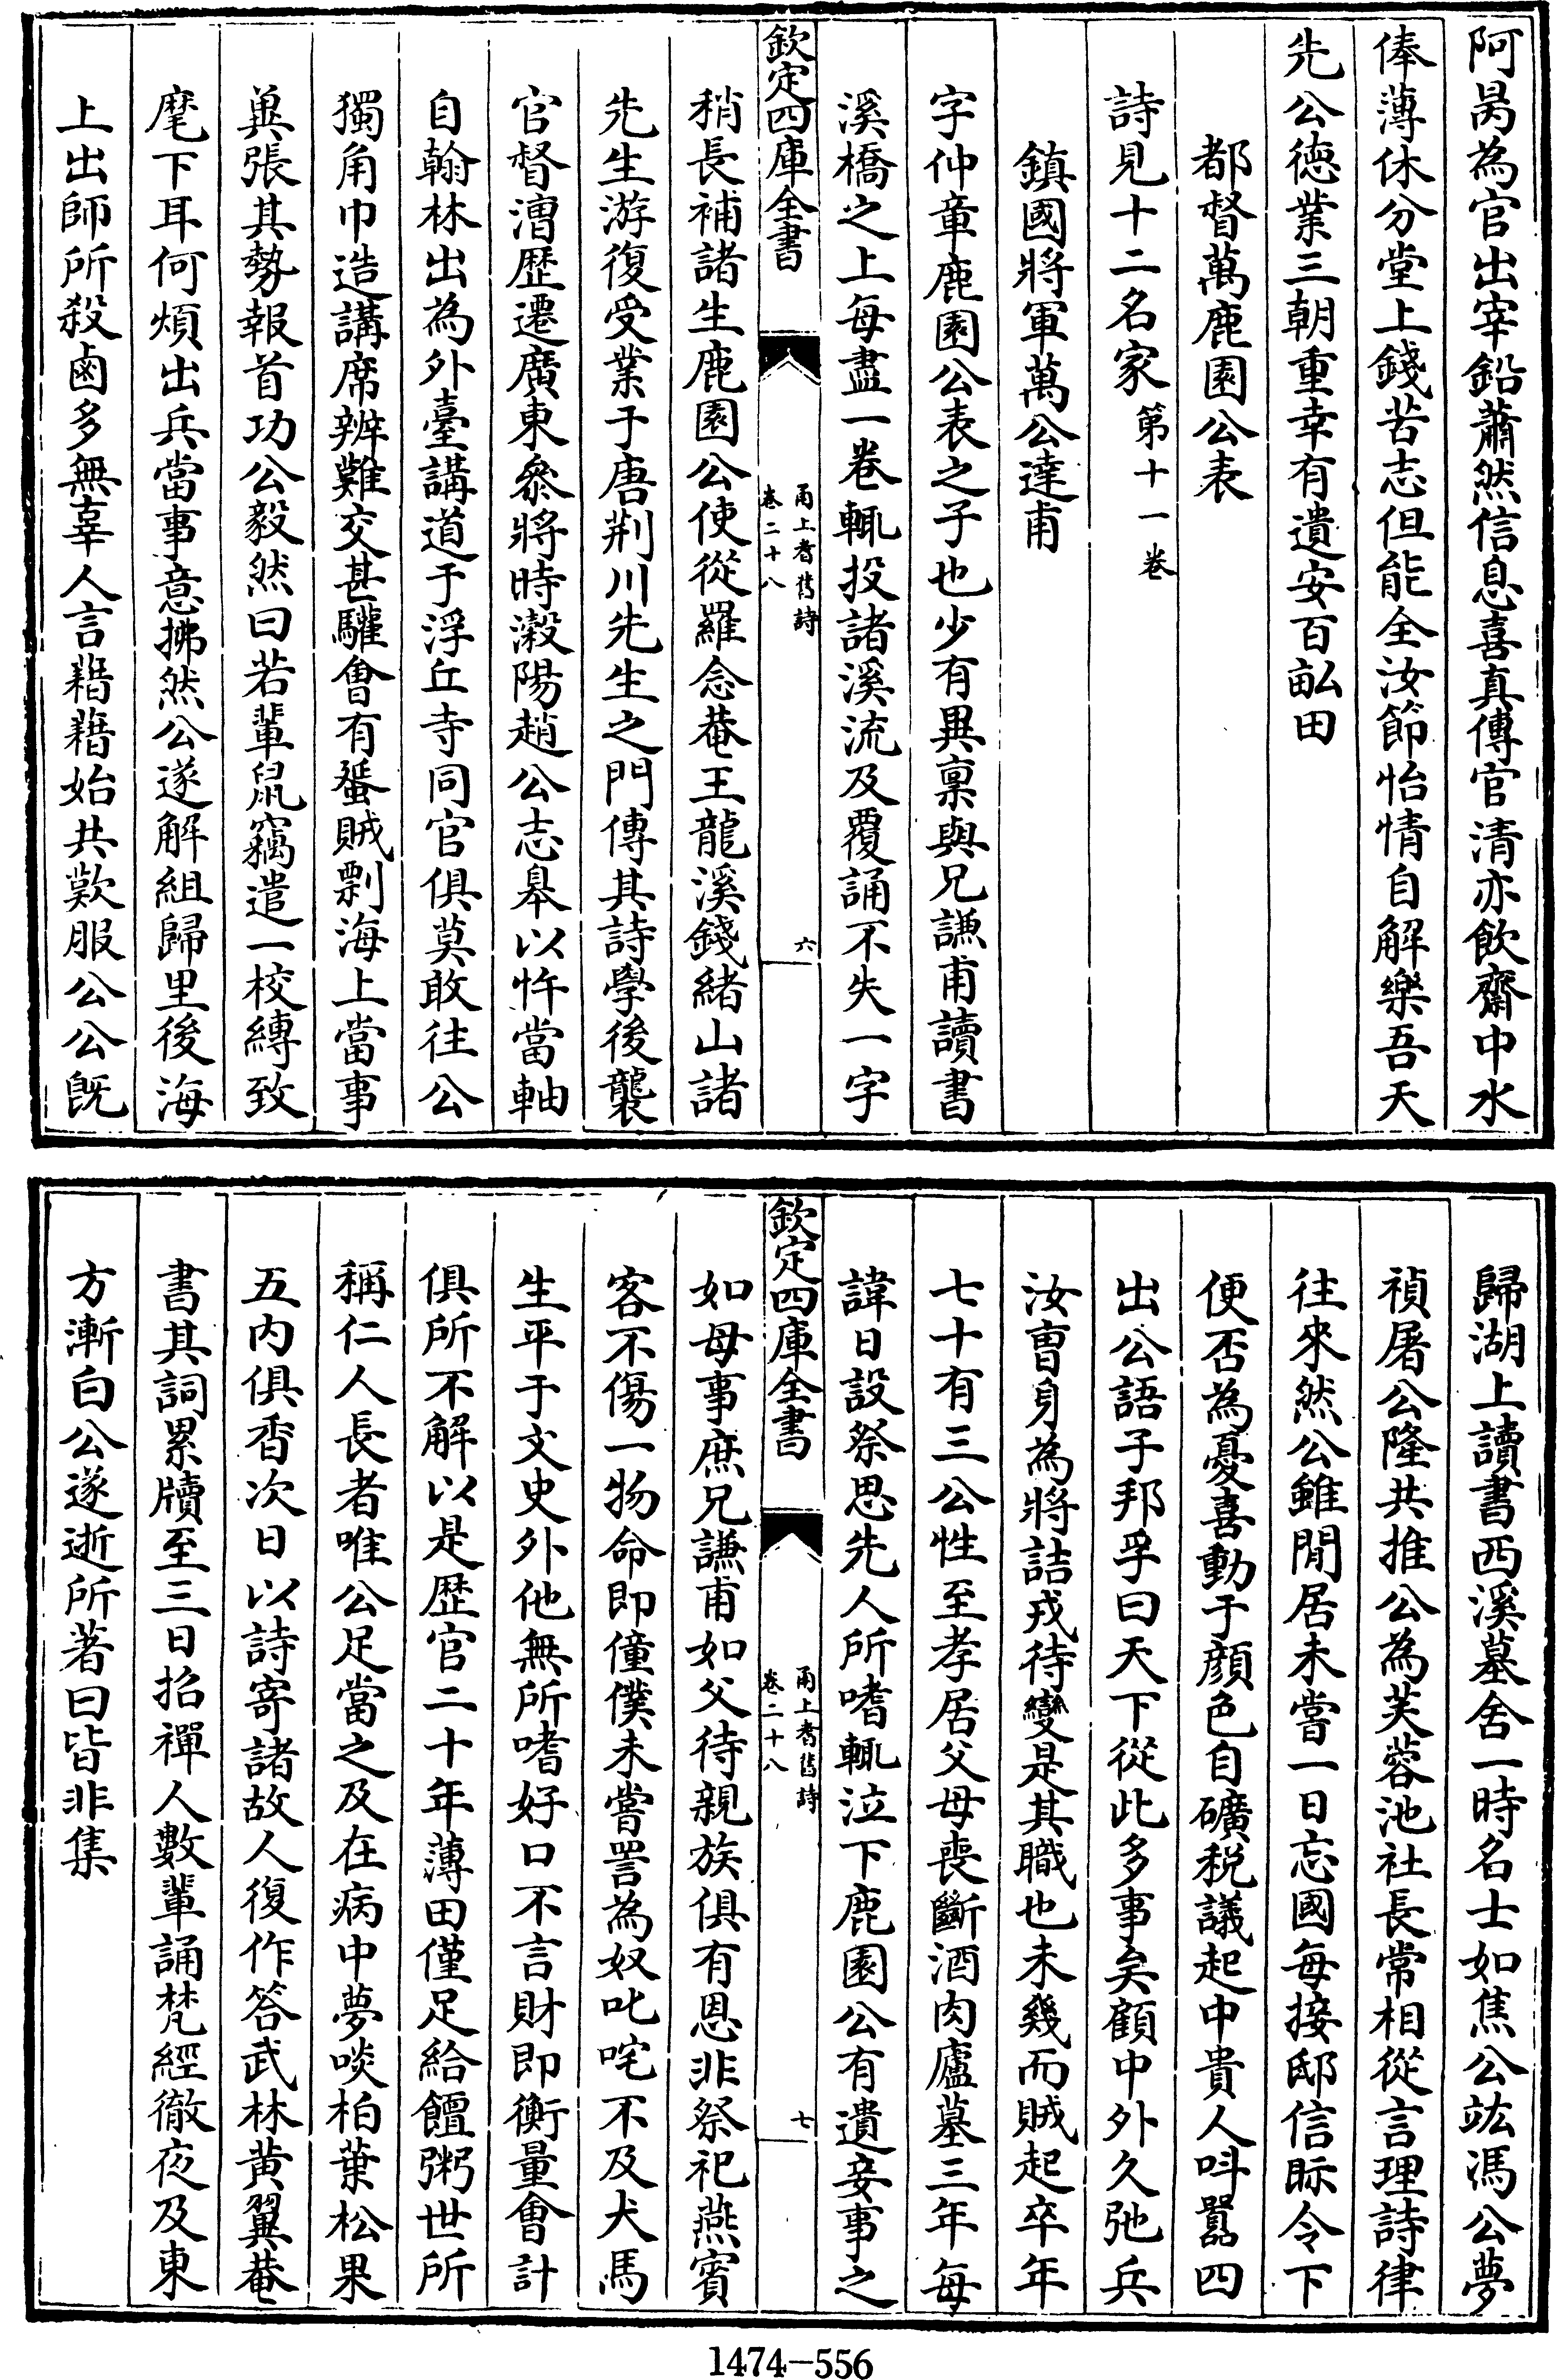 阿咼為官出宰鉛蕭然信息喜真傳官清亦飲齋中水
俸薄休分堂上錢苦志但能全汝節怡情自解樂吾天
先公德業三朝重幸有遺安百畝田
都督萬鹿園公表
詩見十二名家第十一卷
鎮國將軍萬公達甫
字仲章鹿園公表之子也少有異稟與兄謙甫讀書
溪橋之上每盡一卷輒投諸溪流及覆誦不失一字
欽定四庫全書
甬上耆舊詩
卷二十八
六
稍長補諸生鹿園公使從羅念菴王龍溪錢緒山諸
先生游復受業于唐荆川先生之門傳其詩學後襲
官督漕歷遷廣東叅將時瀔陽趙公志臯以忤當軸
自翰林出為外臺講道于浮丘寺同官俱莫敢往公
獨角巾造講席辨難交甚驩會有蜑賊剽海上當事
兾張其勢報首功公毅然曰若輩鼠竊遣一校縛致
麾下耳何煩出兵當事意拂然公遂解組歸里後海
上出師所殺鹵多無辜人言藉藉始共歎服公公既
歸湖上讀書西溪墓舍一時名士如焦公竑馮公夢
禎屠公隆共推公為芙蓉池社長常相從言理詩律
往來然公雖閒居未嘗一日忘國每接邸信眎令下
便否為憂喜動于顔色自礦税議起中貴人呌囂四
出公語子邦孚曰天下從此多事矣顧中外久弛兵
汝曹身為將詰戎待變是其職也未幾而賊起卒年
七十有三公性至孝居父母喪斷酒肉廬墓三年每
諱日設祭思先人所嗜輒泣下鹿園公有遺妾事之
欽定四庫全書
甬上耆舊詩
卷二十八
七
如母事庶兄謙甫如父待親族俱有恩非祭祀燕賓
客不傷一物命即僮僕未嘗詈為奴叱咤不及犬馬
生平于文史外他無所嗜好口不言財即衡量會計
俱所不解以是歷官二十年薄田僅足給饘粥世所
稱仁人長者唯公足當之及在病中夢啖柏葉松果
五内俱香次日以詩寄諸故人復作答武林黄翼菴
書其詞累牘至三日招禪人數輩誦梵經徹夜及東
方漸白公遂逝所著曰皆非集
1474-556